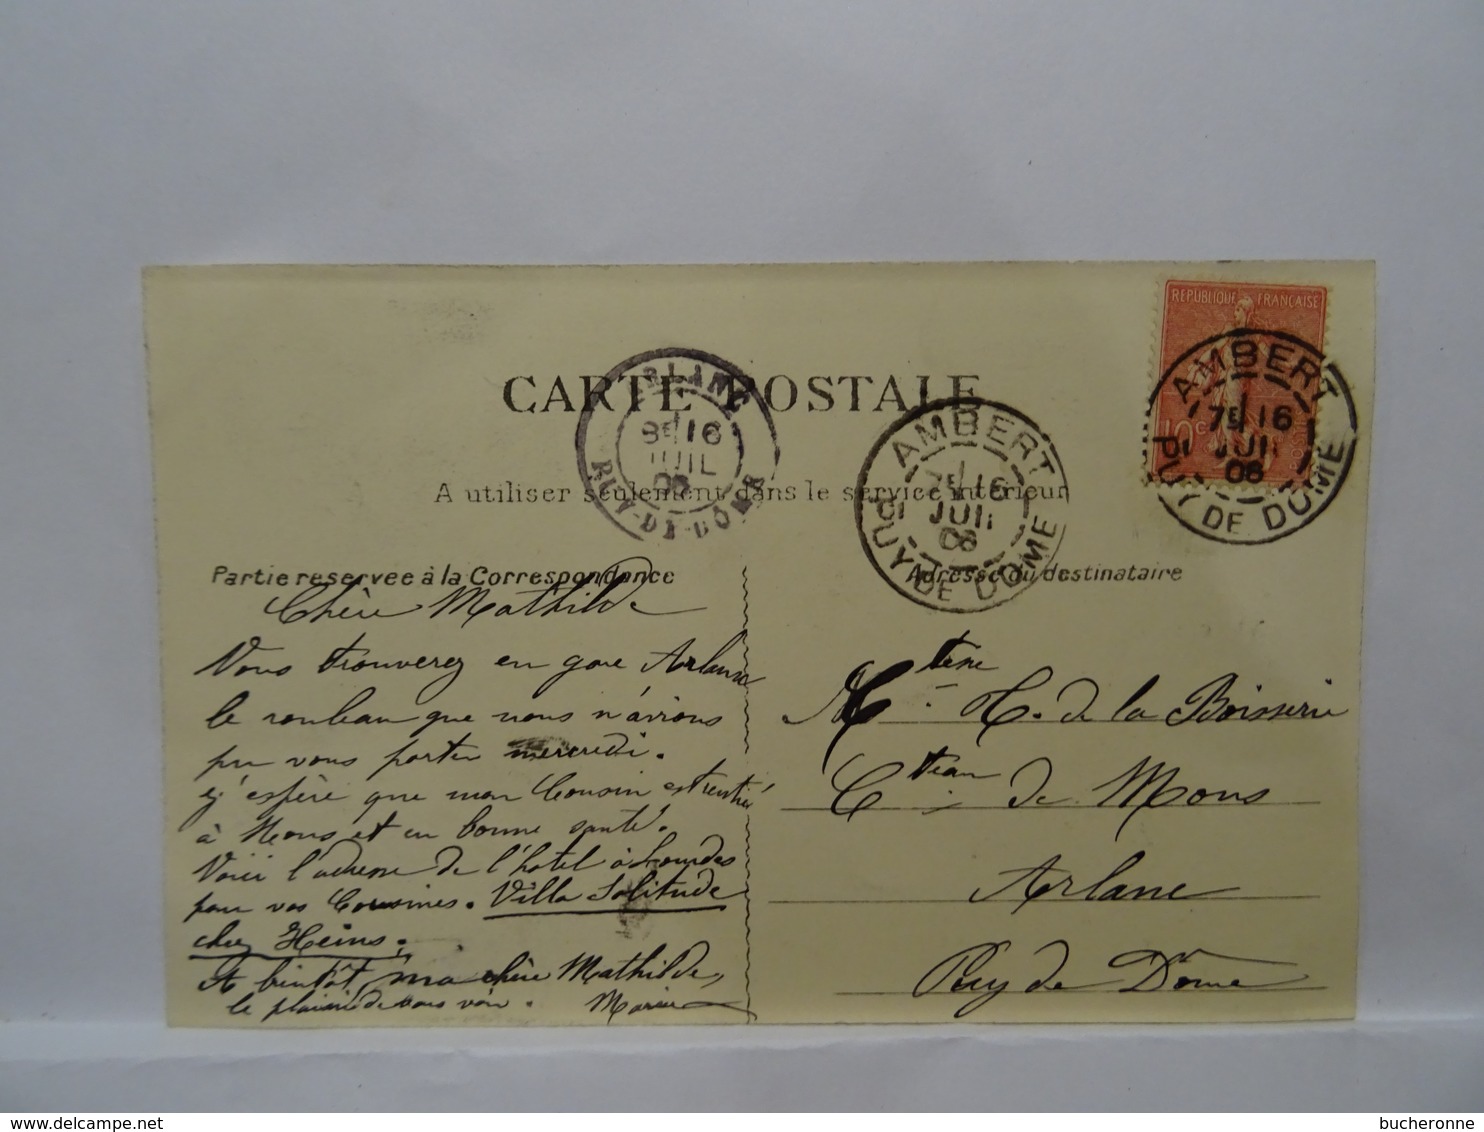 REPUBLIQUE FRANÇAISE
10c
AMBERT
7E 16
JUIL
06
PUY DE DOME
CARTE POSTALE
ARLANC
8E 16
JUIL
06
PUY-DE-DOME
AMBERT
7E 16
JUIL
06
PUY DE DOME
A utiliser seulement dans le service intérieur
Partie reservee à la Correspondance
Adresse du destinataire
Chère Mathilde
Vous trouverez en gare Arlanc
le rouleau que nous n'avions
pu vous porter mercredi.
j'espère que mon Cousin est rentré
à Mons et en bonne santé.
Voici l'adresse de l'hotel à Lourdes
pour vos Cousines. Villa Solitude
chez Heins.
A bientôt, ma chère Mathilde,
le plaisir de vous voir.
H. de la Boisserie
Cteau de Mons
Arlanc
Puy de Dome
bucheronne